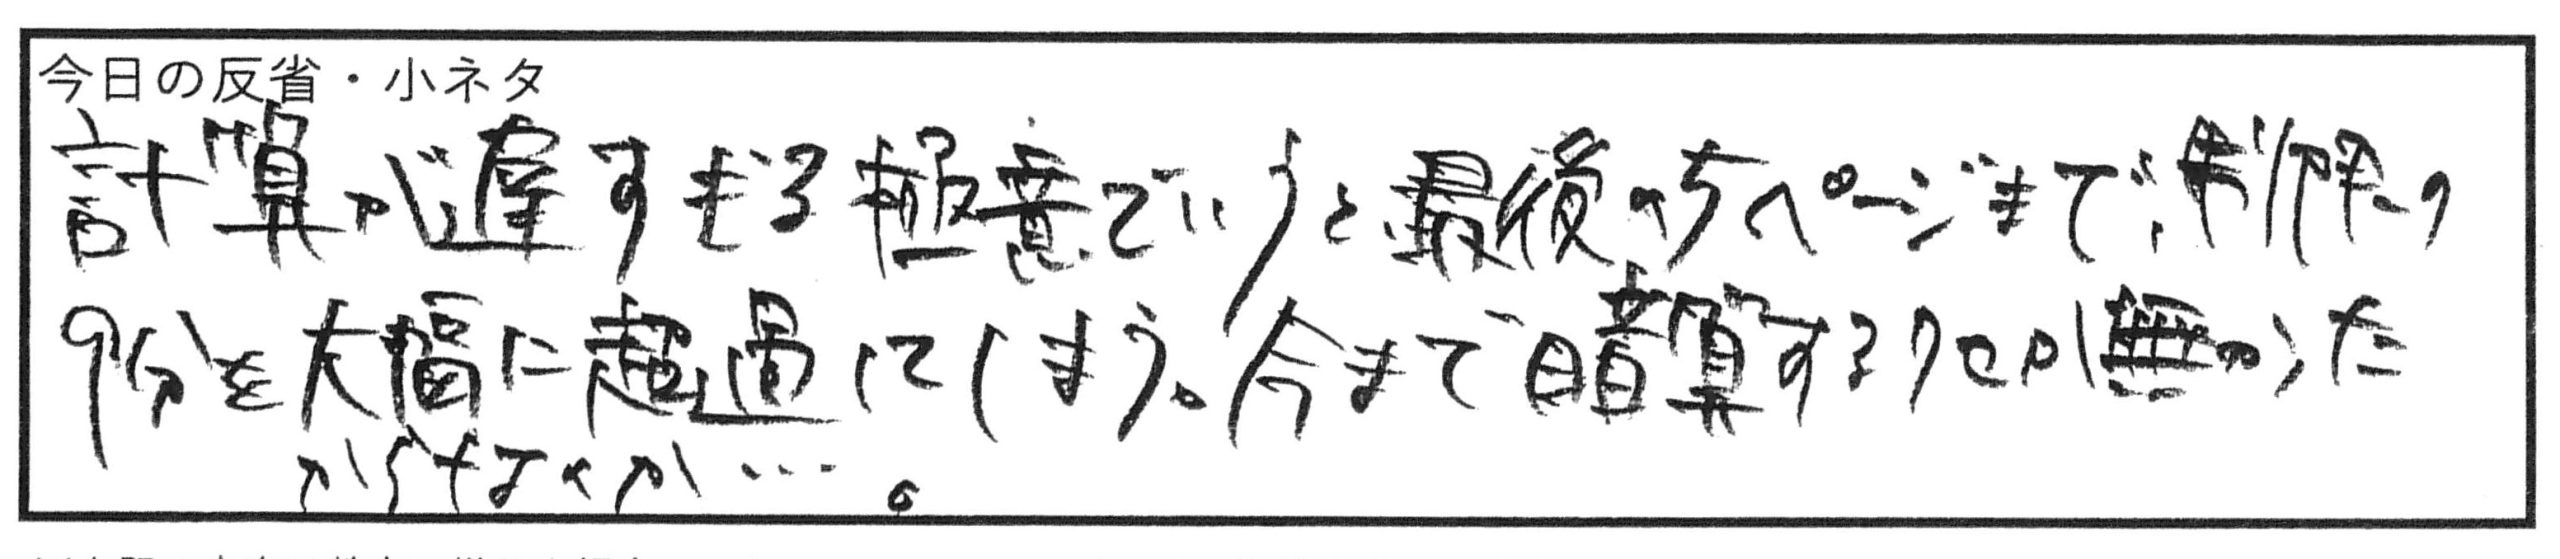 今日の反省・小ネタ
計算が遅すぎる極意でいうと最後のちページまで、制限の
9分を大幅に超過してしまう。今まで暗算するクセが無かった
からなのか…。